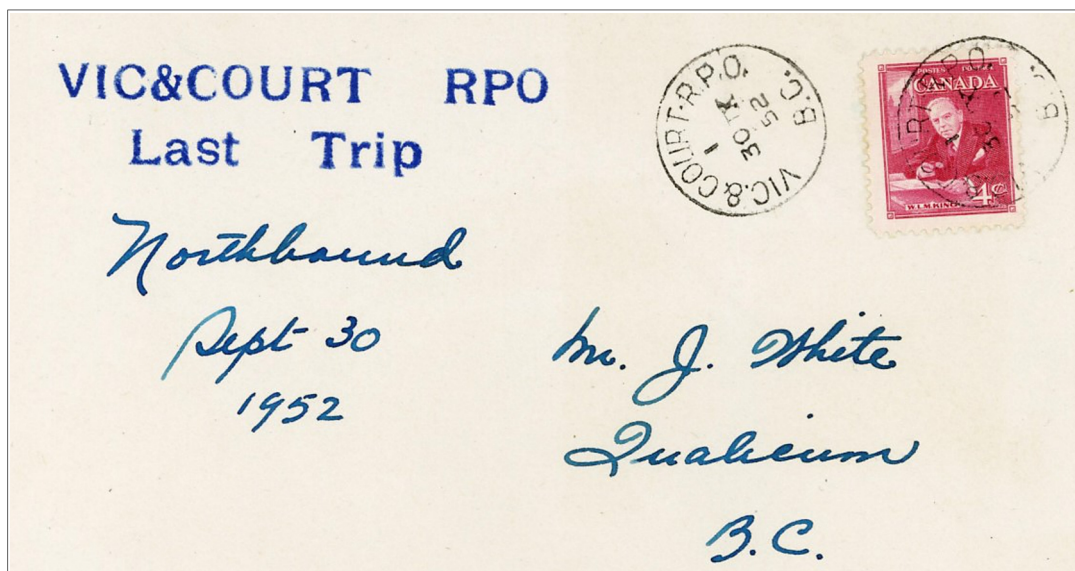 VIC&COURT RPO
Last Trip
Northbound
Sept 30
1952
VIC.&COURT.R.P.O.
B.C.
1
30 IX
52
CANADA
4¢
Mr. J. White
Qualicum
B.C.